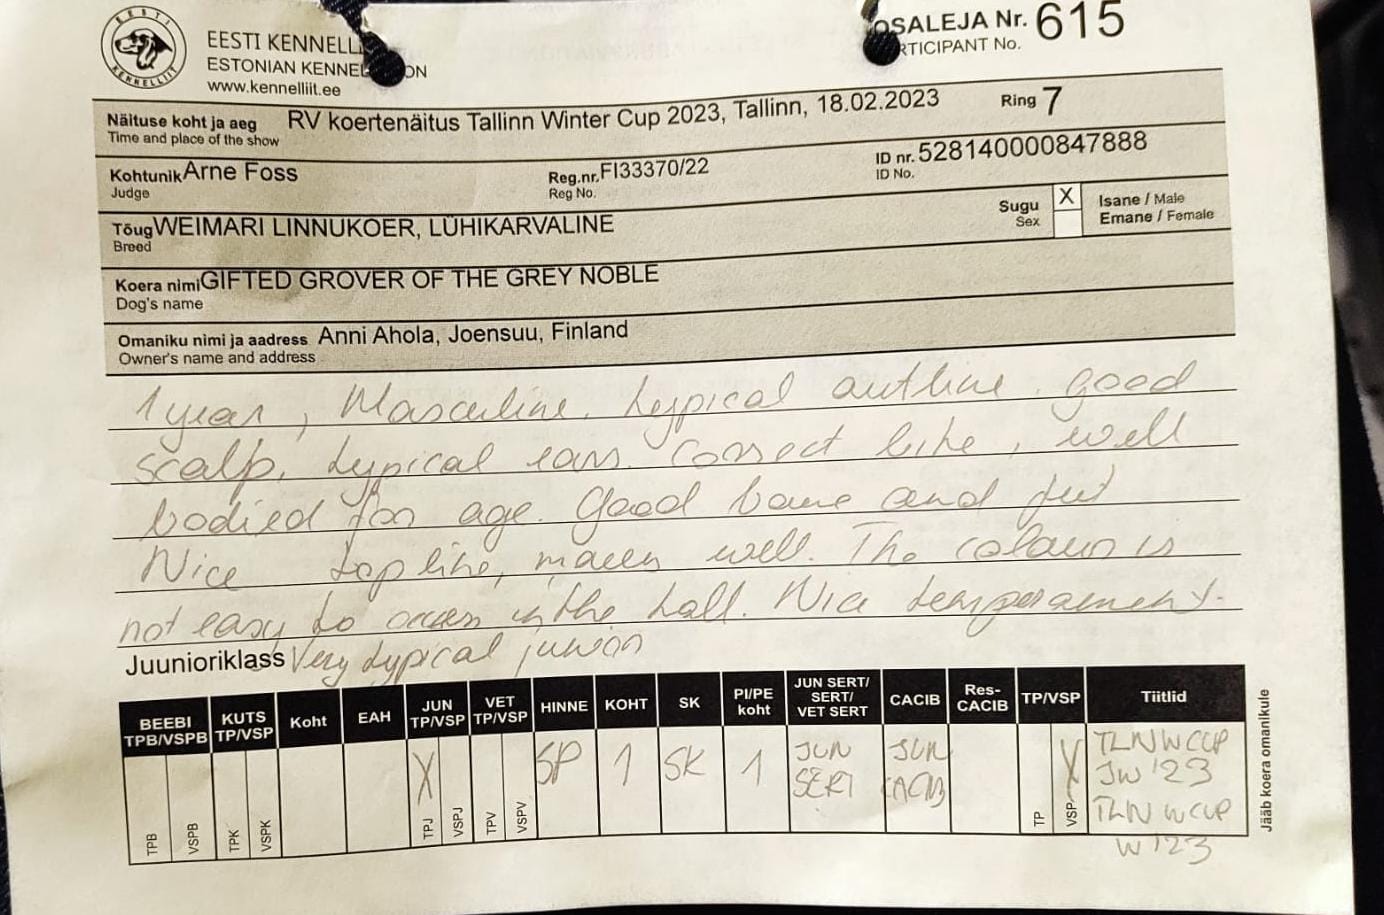 EESTI KENNELLI
ESTONIAN KENNEL ON
www.kennelliit.ee
EESTI KENNELLIIT
OSALEJA Nr. 615
PARTICIPANT No.
Näituse koht ja aeg RV koertenäitus Tallinn Winter Cup 2023, Tallinn, 18.02.2023 Ring 7
Time and place of the show
Kohtunik Arne Foss Reg.nr. FI33370/22 ID nr. 528140000847888
Judge Reg No. ID No.
Tõug WEIMARI LINNUKOER, LÜHIKARVALINE Sugu X Isane / Male
Breed Sex Emane / Female
Koera nimi GIFTED GROVER OF THE GREY NOBLE
Dog's name
Omaniku nimi ja aadress Anni Ahola, Joensuu, Finland
Owner's name and address
1 year, Masculine. typical outline. good
scalp, typical ears. Correct bite, well
bodied for age. Good bone and
Nice top line, moves well. The colour is
not easy to in the hall. Nice temperament.
Juunioriklass Very typical junior
BEEBI TPB/VSPB KUTS TP/VSP Koht EAH JUN TP/VSP VET TP/VSP HINNE KOHT SK PI/PE koht JUN SERT/ SERT/ VET SERT CACIB Res-CACIB TP/VSP Tiitlid
X SP 1 SK 1 JUN SERT JUN CACIB X TLN W CUP
JW '23
TLN W CUP
W '23
TPB VSPB TPK VSPK TPJ VSPJ TPV VSPV TP VSP
Jääb koera omanikule